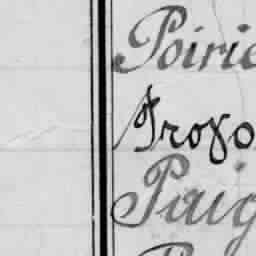 Poirie
Provo
Paig